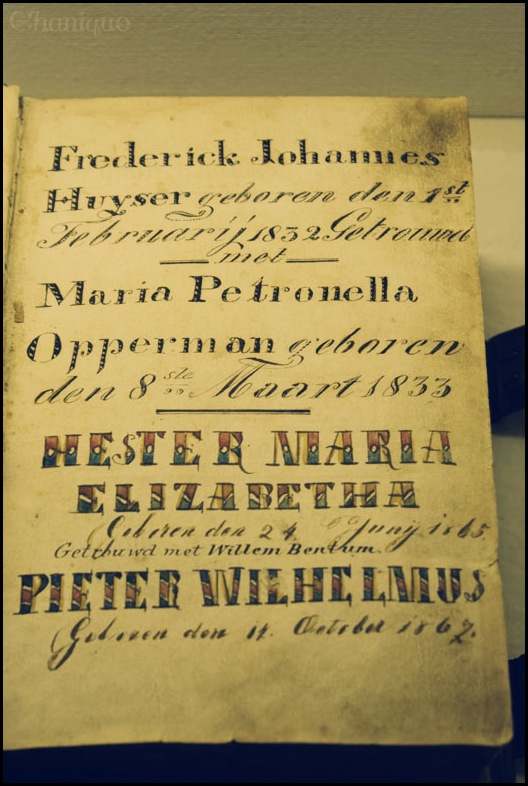 Chanique
Frederick Johannes
Huyser geboren den 1st
Februarij 1832 Getrouwd
met
Maria Petronella
Opperman geboren
den 8ste Maart 1833
HESTER MARIA
ELIZABETHA
Geboren den 24 Junij 1865
Getrouwd met Willem Bentum.
PIETER WILHELMUS
Geboren den 14. October 1867.